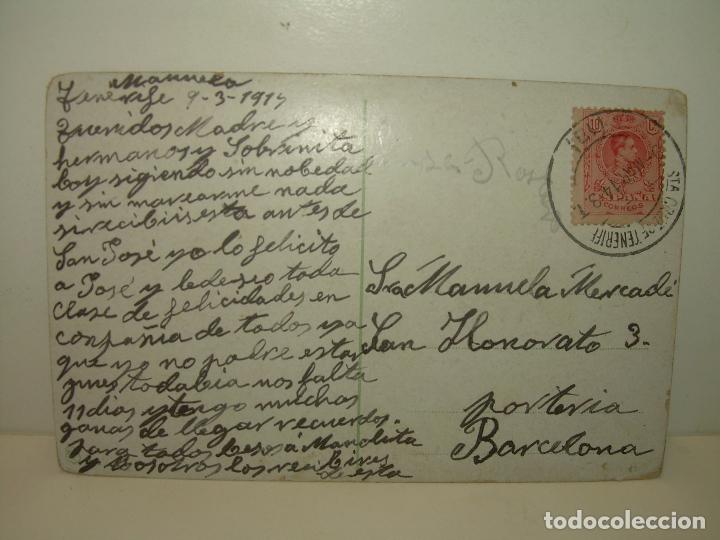 Manuela
Tenerife 9-3-1914
Queridos Madre y
hermanos y Sobrinita
boy sigiendo sin nobedad
y sin marearme nada
si recibiis esta antes de
San José yo lo felicito
a José y le deseo toda
clase de felicidades en
conpañia de todos ya
que yo no podre estar
pues todabia nos falta
11 dias y tengo muchas
ganas de llegar recuerdos.
para todos besos á Manolita
y bosotros los recibires
de esta
CORREOS
STA CRUZ DE TENERIFE
Sra Manuela Mercadé
San Honorato 3.
porteria
Barcelona
todocoleccion
todocoleccion.net